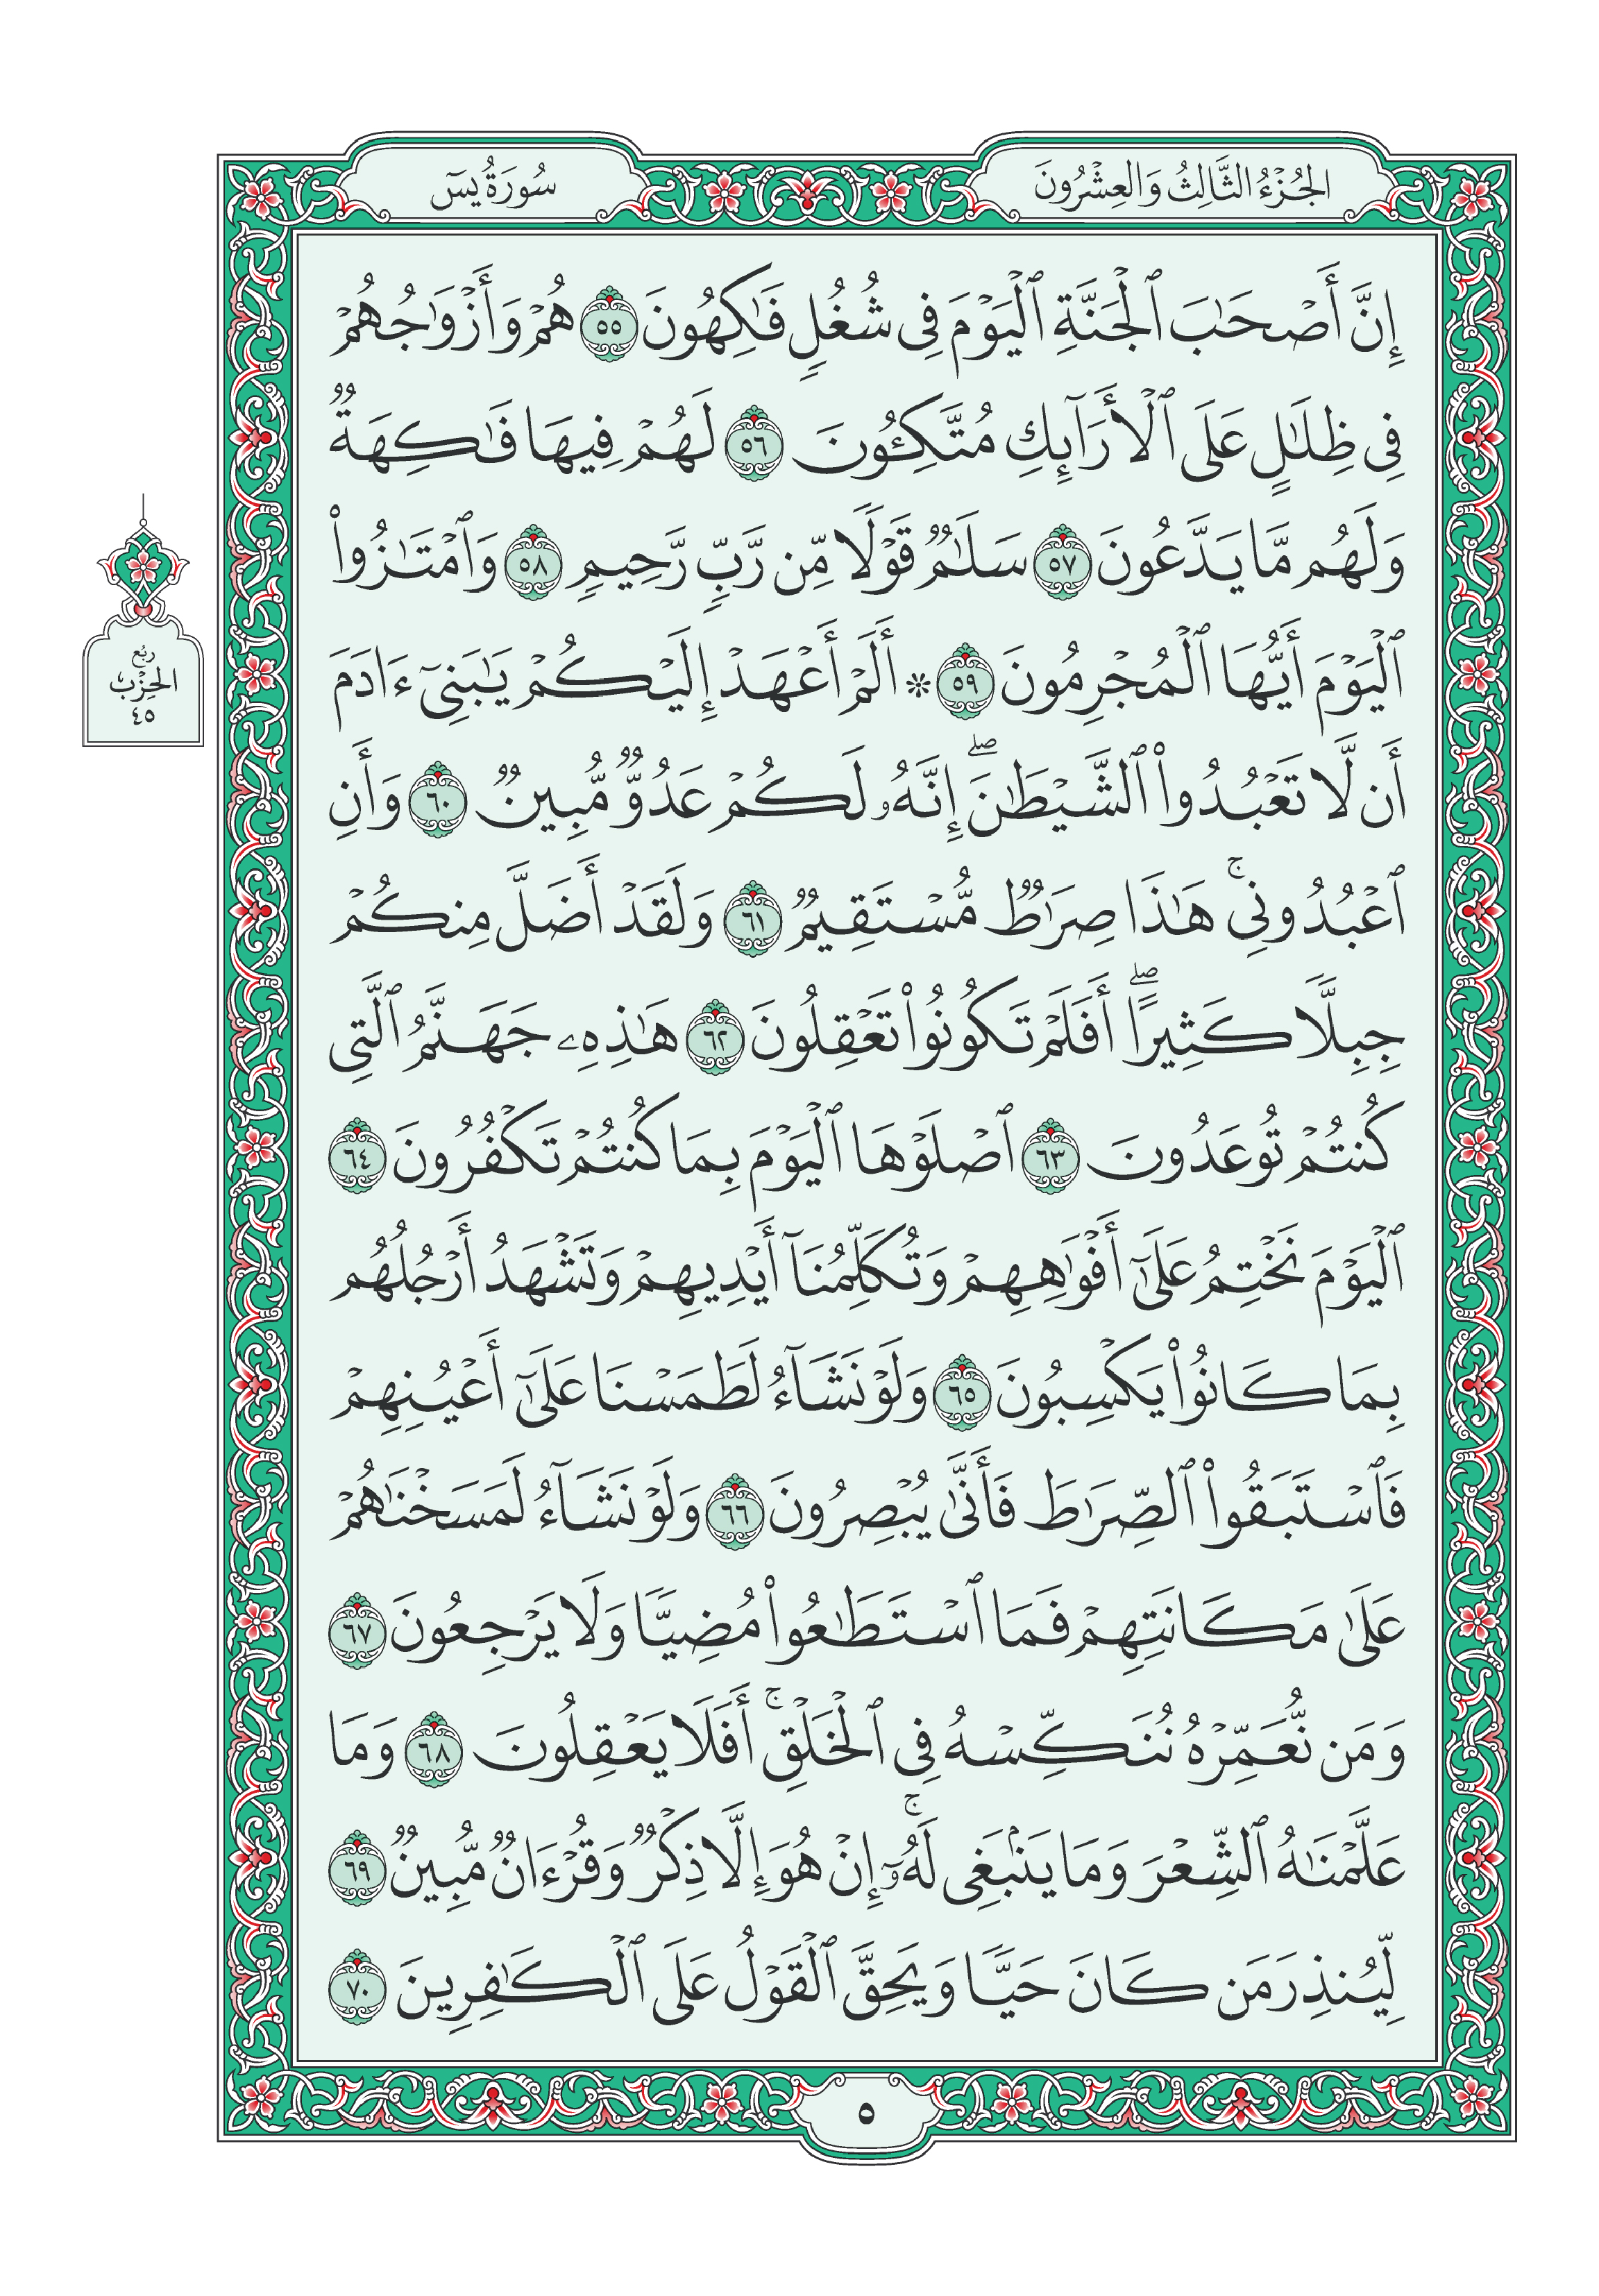 الجُزْءُ الثَّالِثُ وَالعِشْرُونَ
سُورَةُ يسٓ
إِنَّ أَصْحَٰبَ ٱلْجَنَّةِ ٱلْيَوْمَ فِى شُغُلٍ فَٰكِهُونَ ٥٥ هُمْ وَأَزْوَٰجُهُمْ
فِى ظِلَٰلٍ عَلَى ٱلْأَرَآئِكِ مُتَّكِـُٔونَ ٥٦ لَهُمْ فِيهَا فَٰكِهَةٌ
وَلَهُم مَّا يَدَّعُونَ ٥٧ سَلَٰمٌ قَوْلًا مِّن رَّبٍّ رَّحِيمٍ ٥٨ وَٱمْتَٰزُوا۟
ٱلْيَوْمَ أَيُّهَا ٱلْمُجْرِمُونَ ٥٩ * أَلَمْ أَعْهَدْ إِلَيْكُمْ يَٰبَنِىٓ ءَادَمَ
أَن لَّا تَعْبُدُوا۟ ٱلشَّيْطَٰنَ ۖ إِنَّهُۥ لَكُمْ عَدُوٌّ مُّبِينٌ ٦٠ وَأَنِ
ٱعْبُدُونِى ۚ هَٰذَا صِرَٰطٌ مُّسْتَقِيمٌ ٦١ وَلَقَدْ أَضَلَّ مِنكُمْ
جِبِلًّا كَثِيرًا ۖ أَفَلَمْ تَكُونُوا۟ تَعْقِلُونَ ٦٢ هَٰذِهِۦ جَهَنَّمُ ٱلَّتِى
كُنتُمْ تُوعَدُونَ ٦٣ ٱصْلَوْهَا ٱلْيَوْمَ بِمَا كُنتُمْ تَكْفُرُونَ ٦٤
ٱلْيَوْمَ نَخْتِمُ عَلَىٰٓ أَفْوَٰهِهِمْ وَتُكَلِّمُنَآ أَيْدِيهِمْ وَتَشْهَدُ أَرْجُلُهُم
بِمَا كَانُوا۟ يَكْسِبُونَ ٦٥ وَلَوْ نَشَآءُ لَطَمَسْنَا عَلَىٰٓ أَعْيُنِهِمْ
فَٱسْتَبَقُوا۟ ٱلصِّرَٰطَ فَأَنَّىٰ يُبْصِرُونَ ٦٦ وَلَوْ نَشَآءُ لَمَسَخْنَٰهُمْ
عَلَىٰ مَكَانَتِهِمْ فَمَا ٱسْتَطَٰعُوا۟ مُضِيًّا وَلَا يَرْجِعُونَ ٦٧
وَمَن نُّعَمِّرْهُ نُنَكِّسْهُ فِى ٱلْخَلْقِ ۚ أَفَلَا يَعْقِلُونَ ٦٨ وَمَا
عَلَّمْنَٰهُ ٱلشِّعْرَ وَمَا يَنۢبَغِى لَهُۥٓ ۚ إِنْ هُوَ إِلَّا ذِكْرٌ وَقُرْءَانٌ مُّبِينٌ ٦٩
لِّيُنذِرَ مَن كَانَ حَيًّا وَيَحِقَّ ٱلْقَوْلُ عَلَى ٱلْكَٰفِرِينَ ٧٠
رُبُع
الحِزْب
٤٥
٥